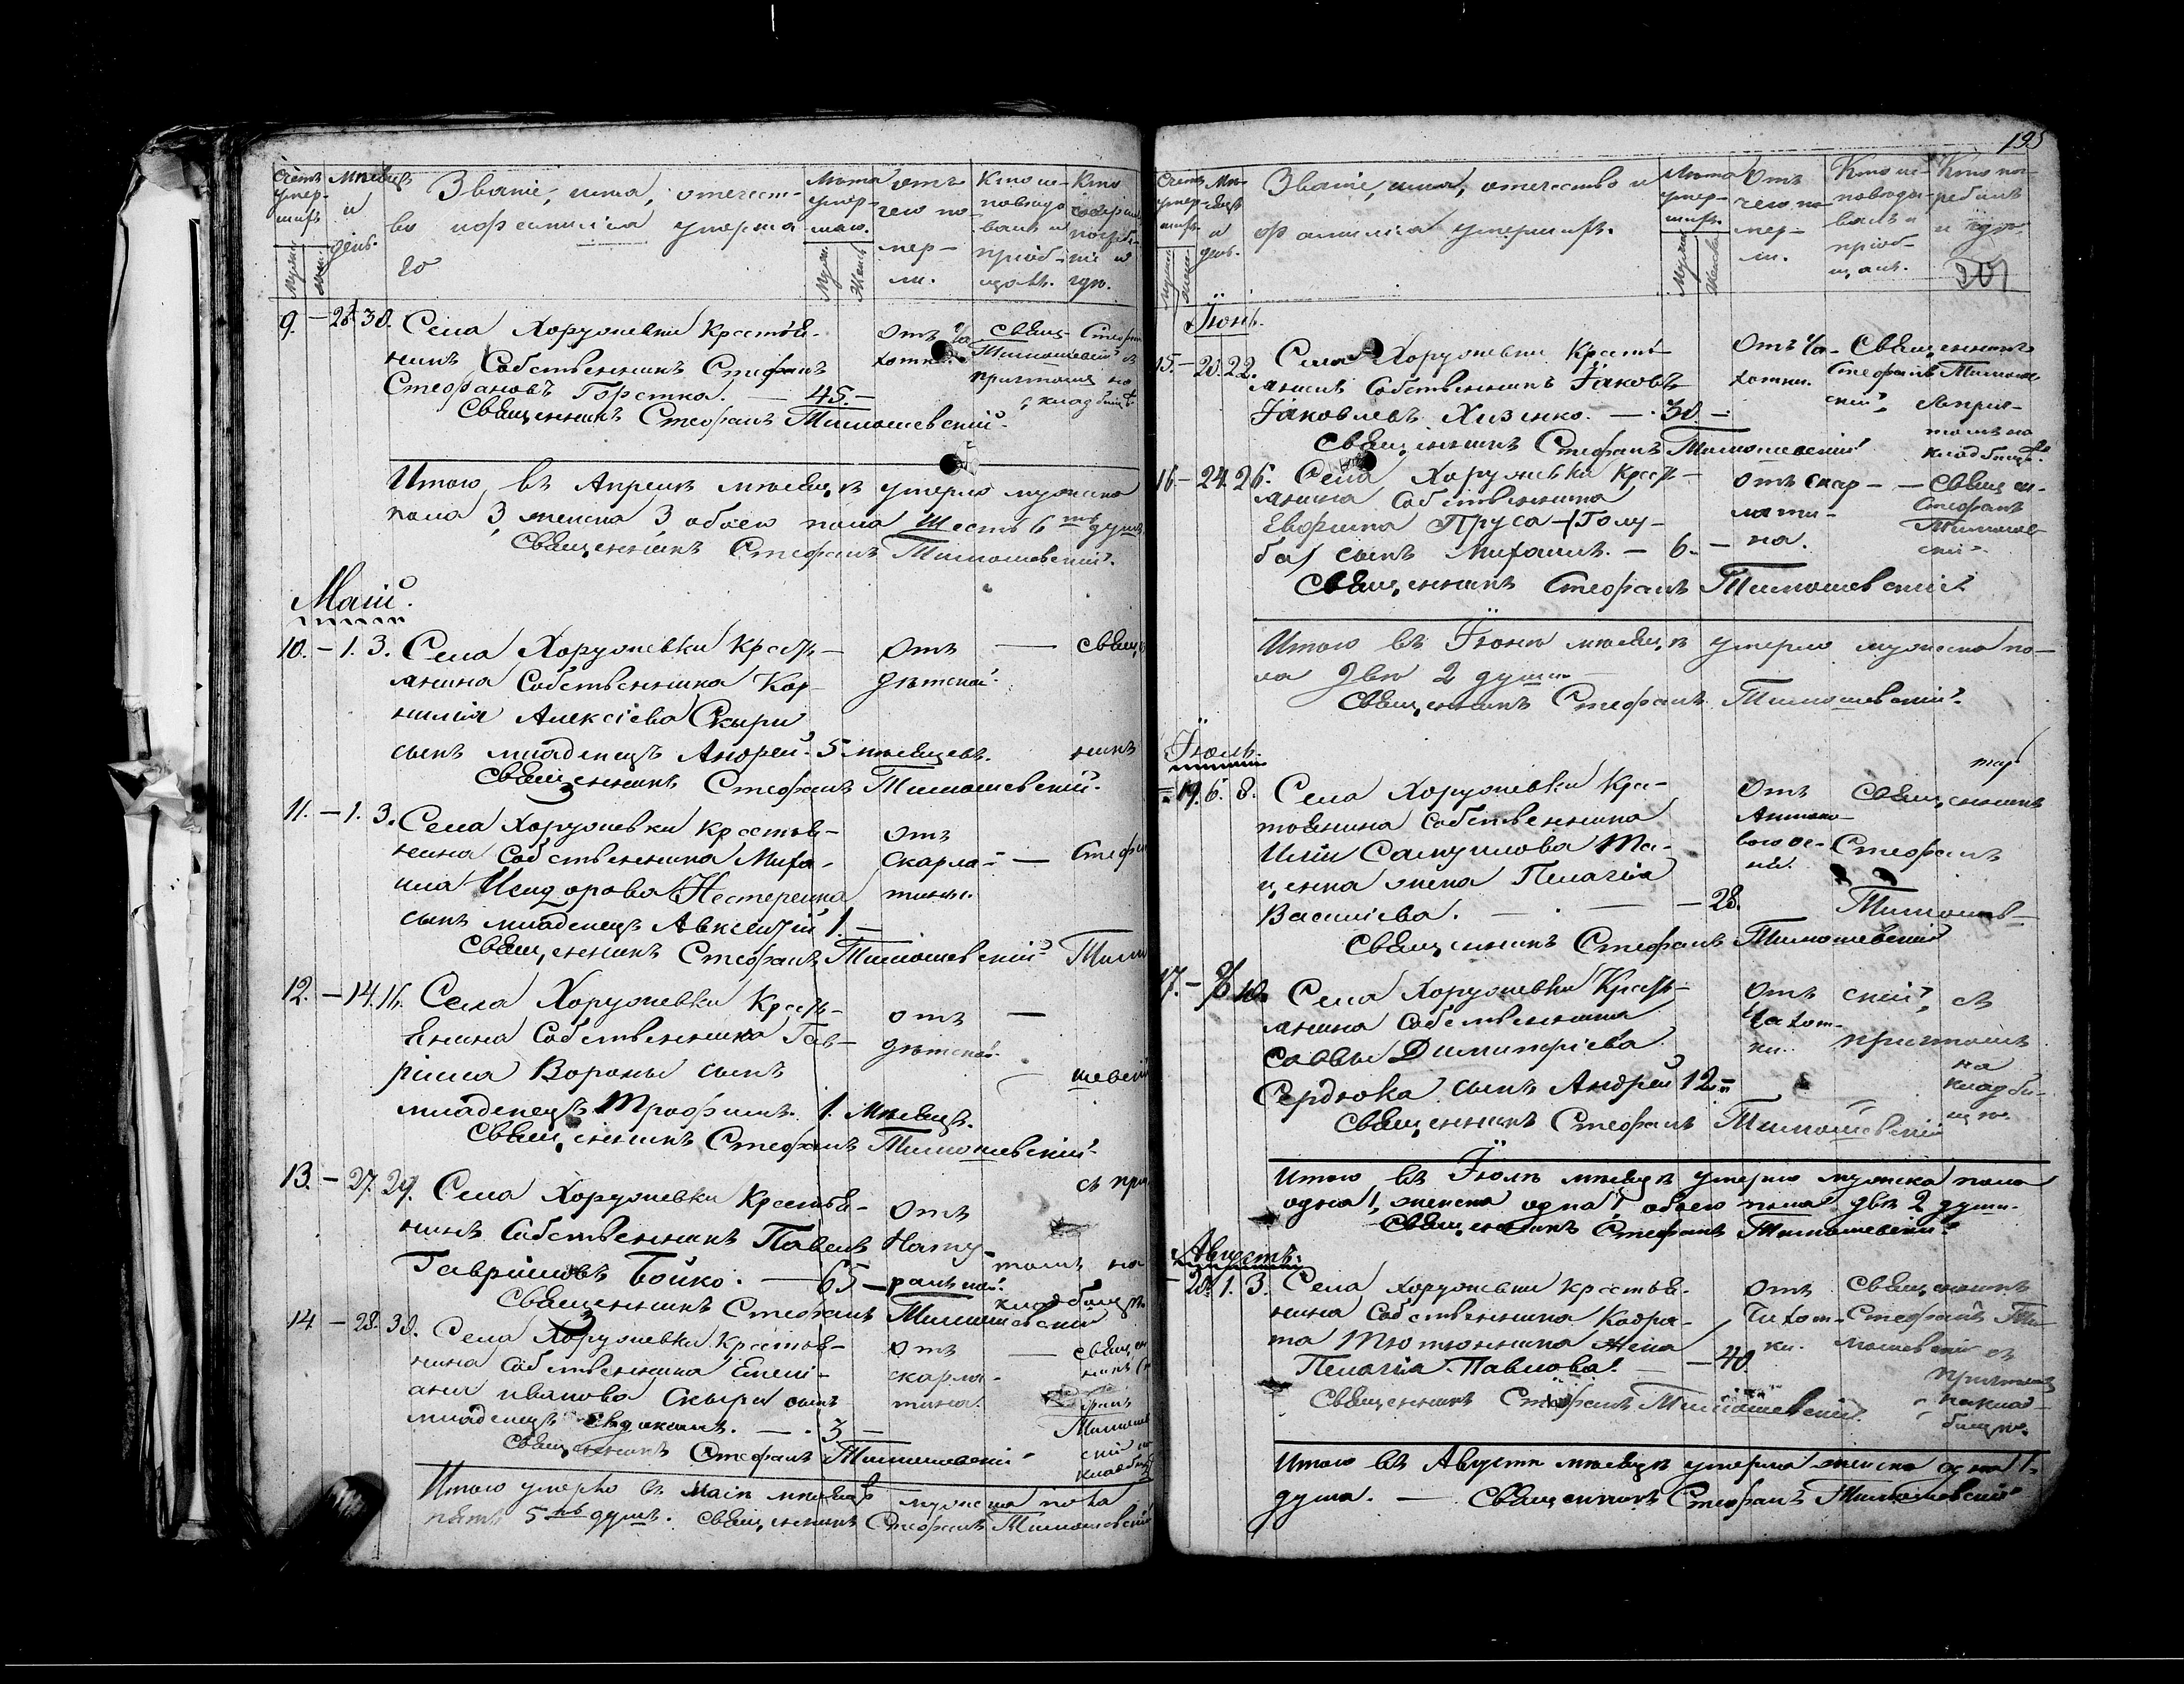 Счетъ умер-шихъ
Мѣсяцъ и день.
Званіе, имя, отчест-
во и фамилія умерша
го
Лѣта умер-шаго.
отъ чего по-мер-ли.
Кто ис-повѣдо валъ и пріоб-щалъ.
Муж. Жен.
9. – 28. 30. Села Хоружевки Крестья-
нинъ Собственникъ Стефанъ
Стефановъ Горстка. — 45. –
отъ Ча
хотки.
Свящ.
Тимошевскій съ
причтомъ на
кладбищѣ.
Священникъ Стефанъ Тимошевскій.
Итого въ Апрелѣ мѣсяцѣ умерло мужеска
пола 3, женска 3, обоего пола Шесть 6ть душъ
Священникъ Стефанъ Тимошевскій.
Маій.
10. – 1. 3. Села Хоружевки Кресть-
янина Собственника Кор-
нилія Алексіева Скыри
сынъ младенецъ Андрей. 5 мѣсяцевъ.
отъ
дѣтской.
Священникъ Стефанъ Тимошевскій.
11. – 1. 3. Села Хоружевки Крестья-
нина Собственника Миха-
ила Исидорова Нестеренка
сынъ младенецъ Авксентій 1. –
отъ
скарла-
тины.
Священникъ Стефанъ Тимошевскій.
12. – 14. 16. Села Хоружевки Кресть-
янина Собственника Гав-
ріила Вороны сынъ
младенецъ Трофимъ. 1. Мѣсяцъ.
отъ
дѣтской.
Священникъ Стефанъ Тимошевскій.
13. – 27. 29. Села Хоружевки Крестья-
нинъ Собственникъ Павелъ
Гавріиловъ Бойко. — 65 –
отъ
Нату-
ральной.
съ при
томъ на
кладбищѣ
Священникъ Стефанъ Тимошевскій
14 – 28. 30. Села Хоружевки Крестья-
нина Собственника Емелі-
ана Иванова Скыри сынъ
младенецъ Евдокимъ. — . 3 –
отъ
скарла-
тины.
Священникъ Стефанъ Тимошевскій
Итого умерло въ Маіѣ мѣсяцѣ мужеска пола
пять 5ть душъ. Священникъ Стефанъ Тимошевскій
195
Счетъ умер-шихъ
Мѣ-сяцъ и день.
Званіе, имя, отчество и
фамилія умершихъ.
Лѣта умер-шихъ.
Отъ чего по-мер-ли.
Кто ис-повѣды-валъ и пріоб-щалъ.
Кто по-гребалъ и гдѣ.
201
Іюнь.
15. – 20. 22. Села Хоружевки Кресть-
янинъ Собственникъ Іаковъ
Іаковлевъ Хизенко. — . 30. –
Отъ Ча-
хотки.
Священникъ
Стефанъ Тимоше
скій,
съ прич-
томъ на
кладбищѣ.
Священникъ Стефанъ Тимошевскій
16 – 24. 26. Села Хоружевки Кресть-
янина Собственника
Евфима Пруса (Голу-
ба) сынъ Михаилъ. — 6. –
отъ скар-
лати-
на.
Священ.
Стефанъ
Тимошев
скій.
Священникъ Стефанъ Тимошевскій
Итого въ Іюнѣ мѣсяцѣ умерло мужеска по-
ла двѣ 2 души
Священникъ Стефанъ Тимошевскій.
Іюль.
19. 6. 8. Села Хоружевки Кре-
стьянина Собственника
Иліи Самуилова Та-
ценка жена Пелагія
Василіева. — . — – 28.
Отъ
Антоно-
вого ог-
ня.
Священникъ
Стефанъ
Тимошев-
Священникъ Стефанъ Тимошевскій
17. – 8 10. Села Хоружевки Кресть-
янина Собственника
Саввы Димитріева
Сердюка сынъ Андрей 12 –
Отъ
Чахот-
ки.
скій, съ
причтомъ
на
кладби-
щѣ.
Священникъ Стефанъ Тимошевскій
Итого въ Іюлѣ мѣсяцѣ умерло мужеска пола
одна 1, женска одна 1, обоего пола двѣ 2 души.
Священникъ Стефанъ Тимошевскій.
Августъ.
20. 1. 3. Села Хоружевки Крестья-
нина Собственника Кодра-
та Тютюнника жена
Пелагія Павлова. — 40.
отъ
Чахот-
ки.
Священникъ
Стефанъ Ти-
мошевскій съ
причтомъ
на клад-
бищѣ.
Священникъ Стефанъ Тимошевскій.
Итого въ Августѣ мѣсяцѣ умерла женска одна 1.
душа. — Священникъ Стефанъ Тимошевскій